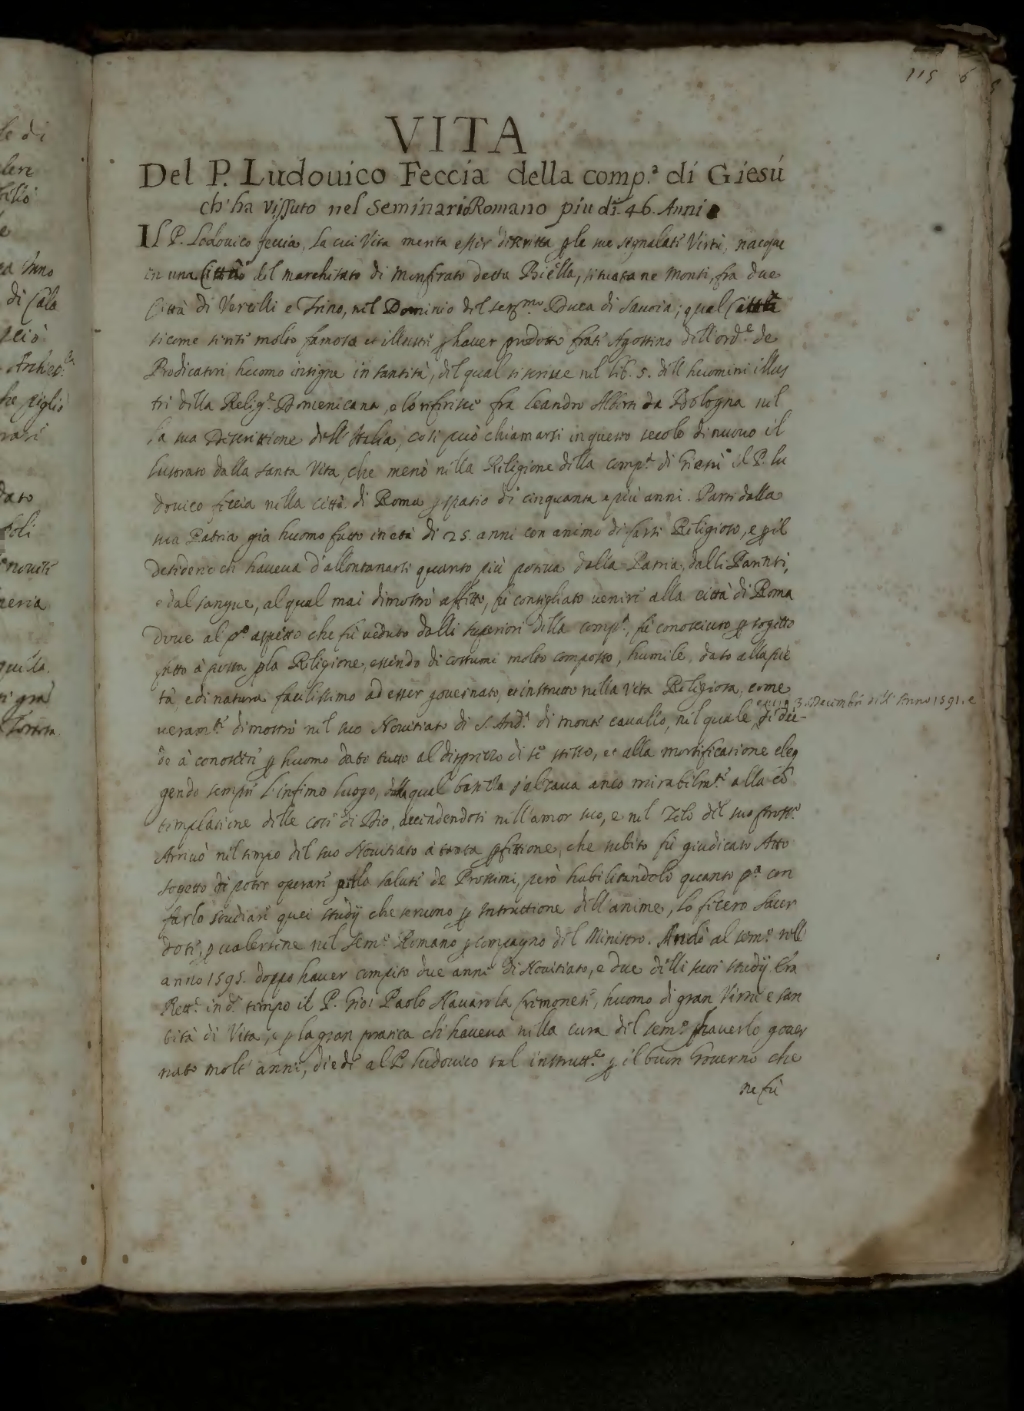 115 6
VITA
Del P. Ludouico Feccia della comp.ª di Giesú
ch'ha vissuto nel Seminario Romano piu di 46. Anni
Il P. Lodouico feccia, la cui Vita merita esser descritta p le sue segnalate Virtù, nacque
in una Città del marchesato di monferato detta Biella, situata ne monti, fra due
Città di Vercelli e Trino, nel Dominio del ser.mo Duca di Sauoia; qual Città
sicome tienti molto famosa et illustre p hauer prodotto frate Agostino dell'ord.e de
Predicatori huomo insigne in santità, del qual si scriue nel lib. 5. dell' huomini illus
tri della Relig.e Domenicana, e lo riferisce fra Leandro Alberti da Bologna nel
la sua Descrittione dell'Italia, cosi può chiamarsi in questo secolo di nuouo il
lustrato dalla santa Vita, che menò nella Religione della comp.ª di Giesù il P. Lu
douico feccia nella città di Roma p spatio di cinquanta e più anni. Partì dalla
sua Patria già huomo fatto in età di 25. anni con animo di farsi Religioso, e p il
desiderio ch'haueua d'allontanarsi quanto più poteua dalla Patria, dalli Parenti,
e dal sangue, al qual mai dimostrò affetto, fù consigliato venire alla città di Roma
doue al p.º aspetto che fù veduto dalli superiori della comp.ª, fù conosciuto p sogetto
fatto à posta p la Religione, essendo di costumi molto composto, humile, dato alla pie
tà e di natura facilissimo ad esser gouernato, et instrutto nella vita Religiosa, come
3. Decembre dell'Anno 1591. e
veram.te dimostrò nel suo Nouitiato di S. And.ª di monte cauallo, nel quale si die-
de à conoscere p huomo dato tutto al disprezzo di se stesso, et alla mortificatione eleg
gendo sempre l'infimo luogo, dalla qual s'alzaua anco mirabilm.te alla cō
templatione delle cose di Dio, accendendosi nell'amor suo, e nel zelo del suo
Arriuò nel tempo del suo Nouitiato à tanta pfettione, che subito fù giudicato Atto
sogetto di poter operare p la salute de Prossimi, però habilitandolo quanto p.ª con
farlo studiare quei studij che seruono p Instruttione dell'anime, lo fecero Sacer
dote, p ualersene nel Sem.º Romano p compagno del Ministro. Andò al sem.º nell'
anno 1595. doppo hauer compito due anni di Nouitiato, e due delli suoi studij. Era
Rett.e in d.º tempo il P. Gio: Paolo Nauarola Cremonese, huomo di gran Virtù e san
tità di Vita, e p la gran pratica ch'haueua nella cura del sem.º p hauerlo gouer
nato molti anni, diede al P. Ludouico tal instrutt.e p il buon Gouerno che
ne fù